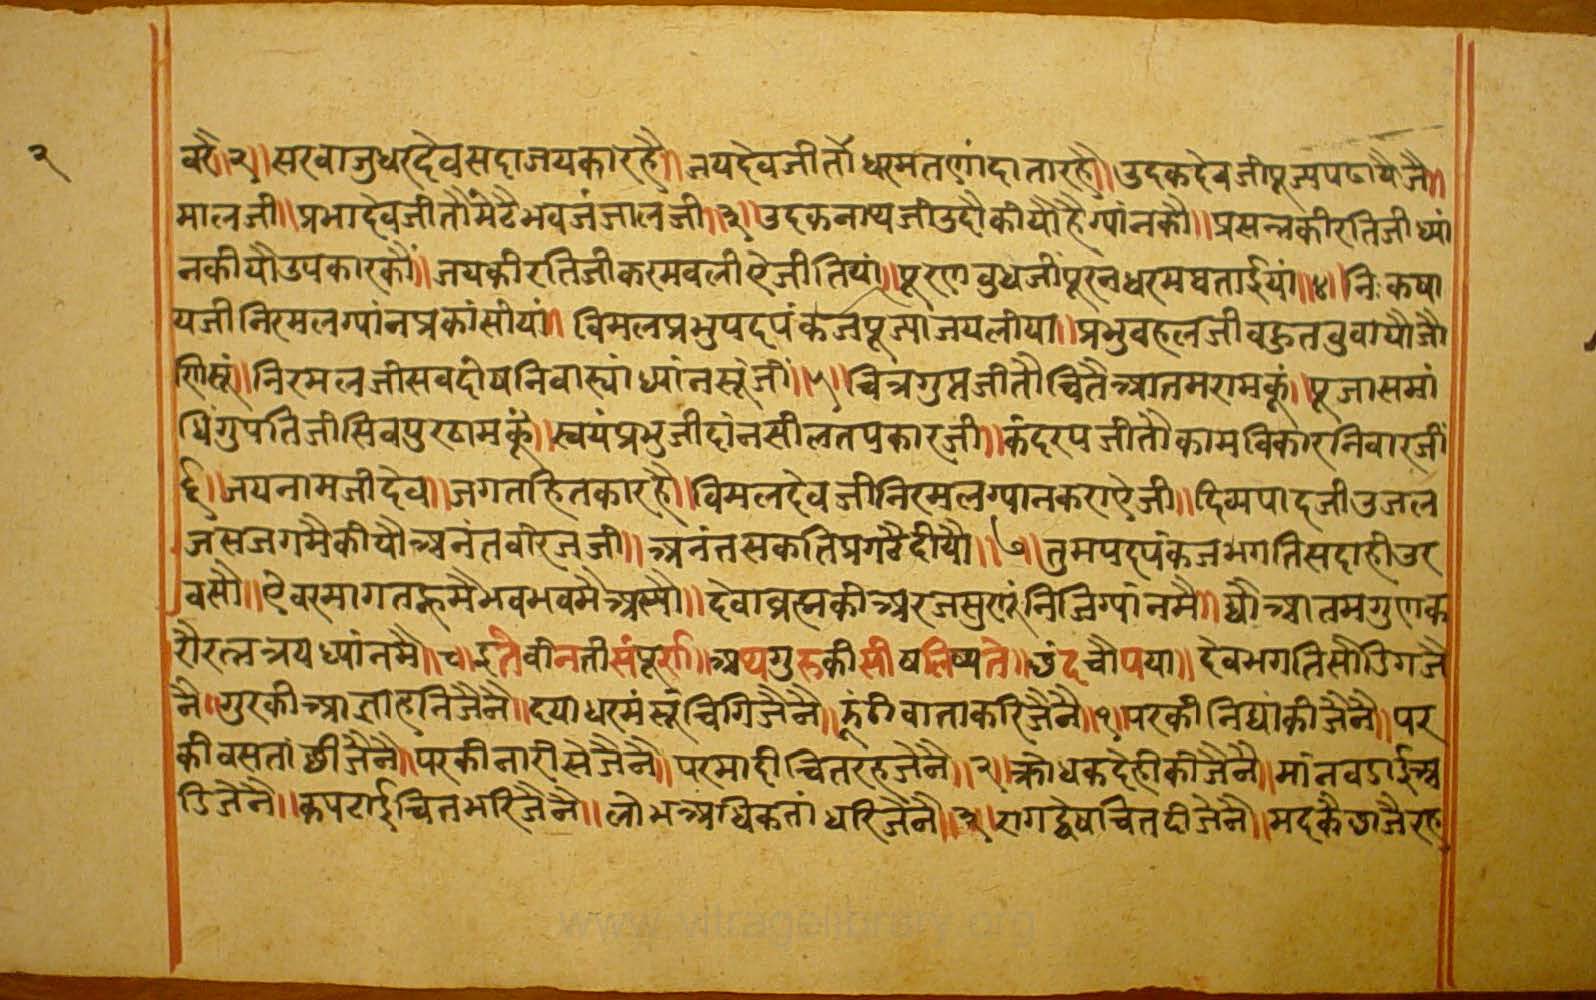 २
वरै॥२॥सरवाजुधरदेवसदाजयकारहै॥जयदेवजीतौधरमतणांदातारहौ॥उदकदेवजीपूज्यपठायैजै॥
मालजी॥प्रभादेवजीतौमेटैभवजंजालजी॥३॥उदकनाथजीउदौकीयौहैग्यांनकौ॥प्रसन्नकीरतिजीध्यां
नकीयौउपकारकौं॥जयकीरतिजीकरमवलीऐजीतियां॥पूरणवुधजीपूरनधरमवताईयां॥४॥निःकषा
यजीनिरमलग्यांनप्रकांसीयां॥विमलप्रभुपदपंकजपूज्यांजयलीया॥प्रभुवहलजीवहुतवुवायौजौ
णिसूं॥निरमलजीसवदीयनिवास्यांध्यांनसूंजी॥५॥चित्रगुप्तजीतौचितैआतमरामकूं॥पूजासमां
धिंगुपतिजीसिवपुरठामकूं॥स्वयंप्रभुजीदांनसीलतपकारजी॥कंदरपजीतौकामविकारनिवारजीं
६॥जयनामजीदेव॥जगतहितकारहौ॥विमलदेवजीनिरमलग्यानकराऐजी॥दिव्यपादजीउजल
जंसजगमैकीयौअनंतवीरजजी॥अनंतसकतिप्रगटैदीयौ॥७॥तुमपदपंकजभगतिसदाहीउर
वसौ॥ऐवरमागतहूमैभवभवमैअसौ॥देवाव्रह्मकीअरजसुणूंनिजिग्यांनमै॥द्यौआतमगुणक
रौरत्नत्रयध्यांनमै॥८॥इतैवीनतीसंपूर्ण॥अथगुरुकीसीषलिष्यतै॥छंदचौपया॥देवभगतिसौडिगजै
नै॥गुरकीआज्ञाहनिजैनै॥दयाधरमंसूंचिगिजैनै॥झूंठीवाताकरिजैनै॥१॥परकीनिद्यांकीजैनै॥पर
कीवसतांछीजैनै॥परकीनारीसेजैनै॥परमादीचितरहजैनै॥२॥क्रोधकदेहीकीजैनै॥मांनवडाईअ
डिजैनै॥कपटाईचितभरिजैनै॥लोभअधिकतांधरिजैनै॥३॥रागद्वेषचितदीजैनै॥मदकैछाजैरह
www.vitragelibrary.org